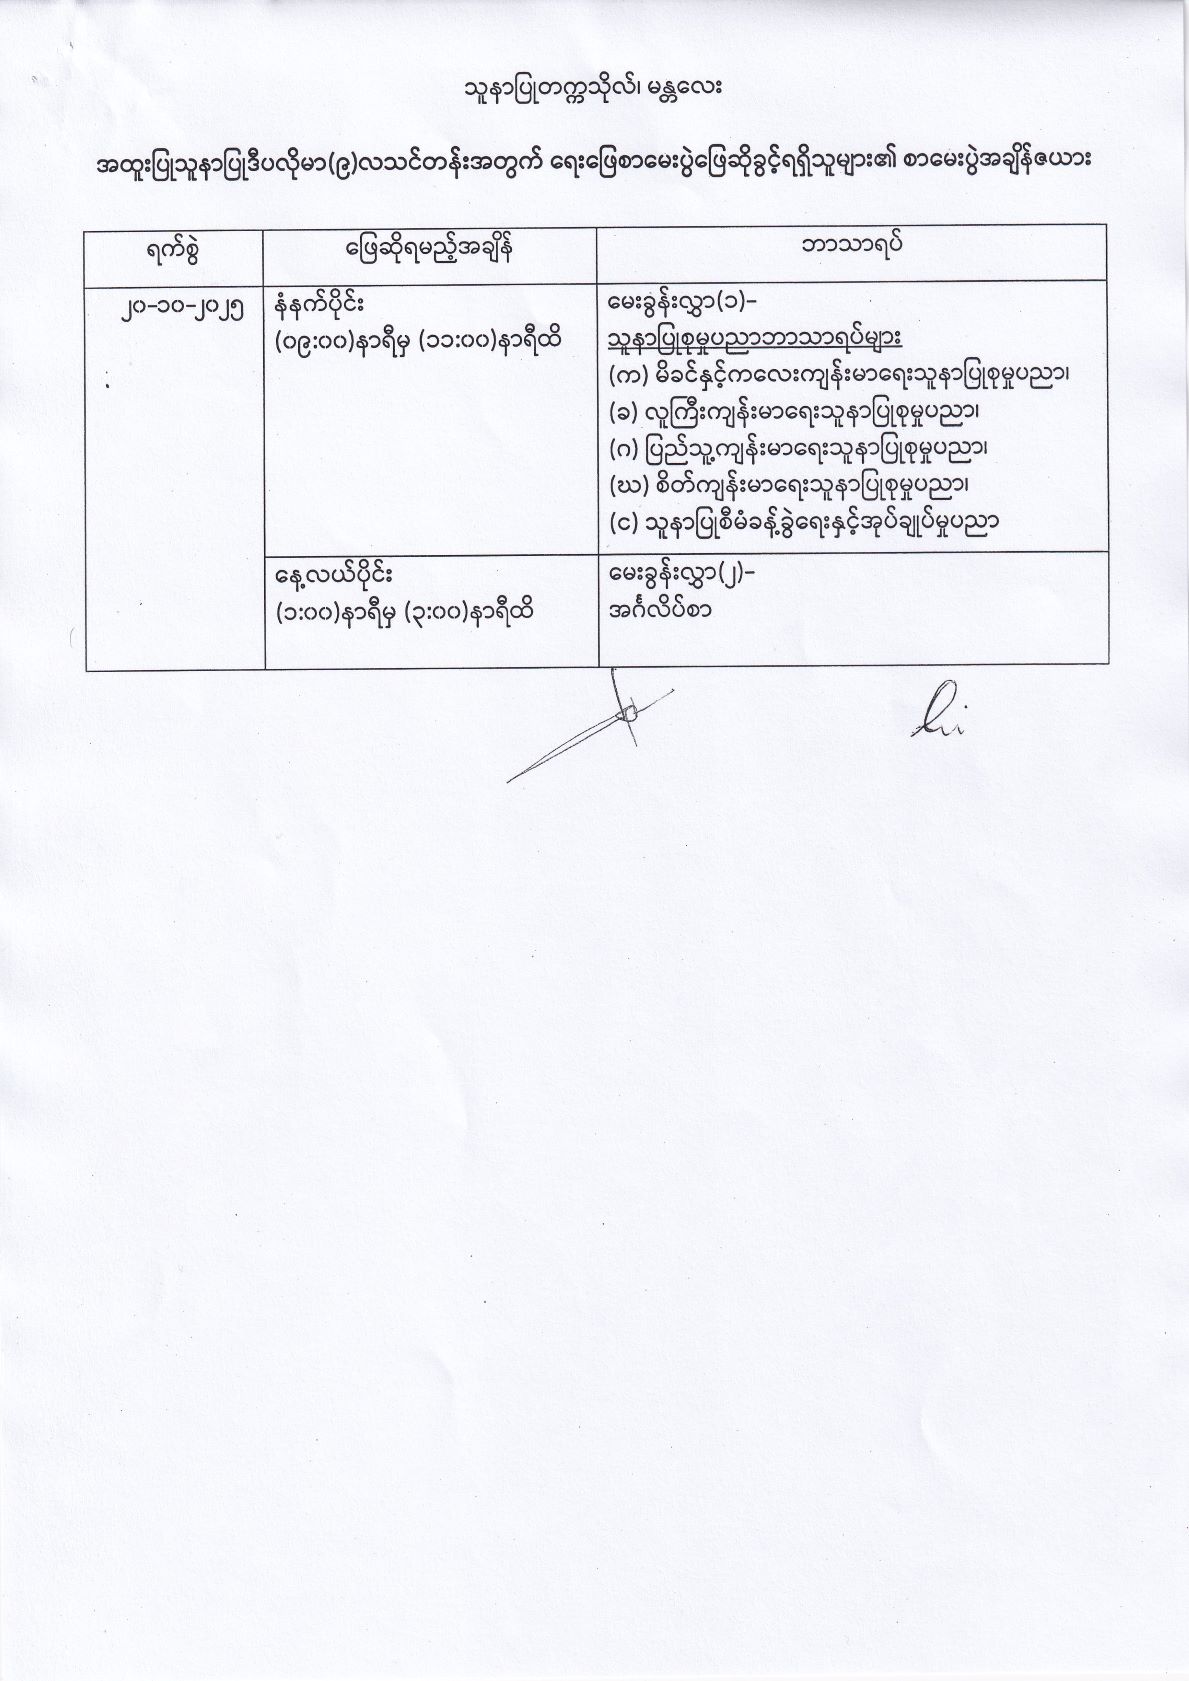 သူနာပြုတက္ကသိုလ်၊ မန္တလေး
အထူးပြုသူနာပြုဒီပလိုမာ(၉)လသင်တန်းအတွက် ရေးဖြေစာမေးပွဲဖြေဆိုခွင့်ရရှိသူများ၏ စာမေးပွဲအချိန်ဇယား
ရက်စွဲ
ဖြေဆိုရမည့်အချိန်
ဘာသာရပ်
၂၀-၁၀-၂၀၂၅
နံနက်ပိုင်း
(၀၉:၀၀)နာရီမှ (၁၁:၀၀)နာရီထိ
မေးခွန်းလွှာ(၁)-
သူနာပြုစုမှုပညာဘာသာရပ်များ
(က) မိခင်နှင့်ကလေးကျန်းမာရေးသူနာပြုစုမှုပညာ၊
(ခ) လူကြီးကျန်းမာရေးသူနာပြုစုမှုပညာ၊
(ဂ) ပြည်သူ့ကျန်းမာရေးသူနာပြုစုမှုပညာ၊
(ဃ) စိတ်ကျန်းမာရေးသူနာပြုစုမှုပညာ၊
(င) သူနာပြုစီမံခန့်ခွဲရေးနှင့်အုပ်ချုပ်မှုပညာ
နေ့လယ်ပိုင်း
(၁:၀၀)နာရီမှ (၃:၀၀)နာရီထိ
မေးခွန်းလွှာ(၂)-
အင်္ဂလိပ်စာ